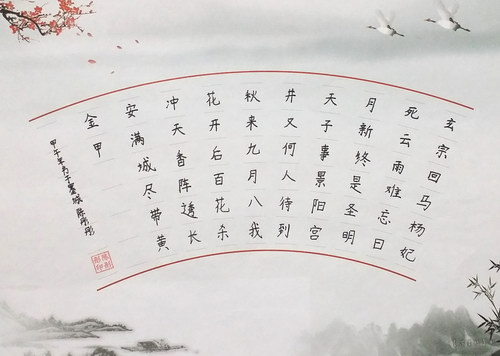 玄宗回马杨妃
死云雨难忘日
月新终是圣明
天子事景阳宫
井又何人待到
秋来九月八我
花开后百花杀
冲天香阵透长
安满城尽带黄
金甲
甲午 书于 陈彤彤